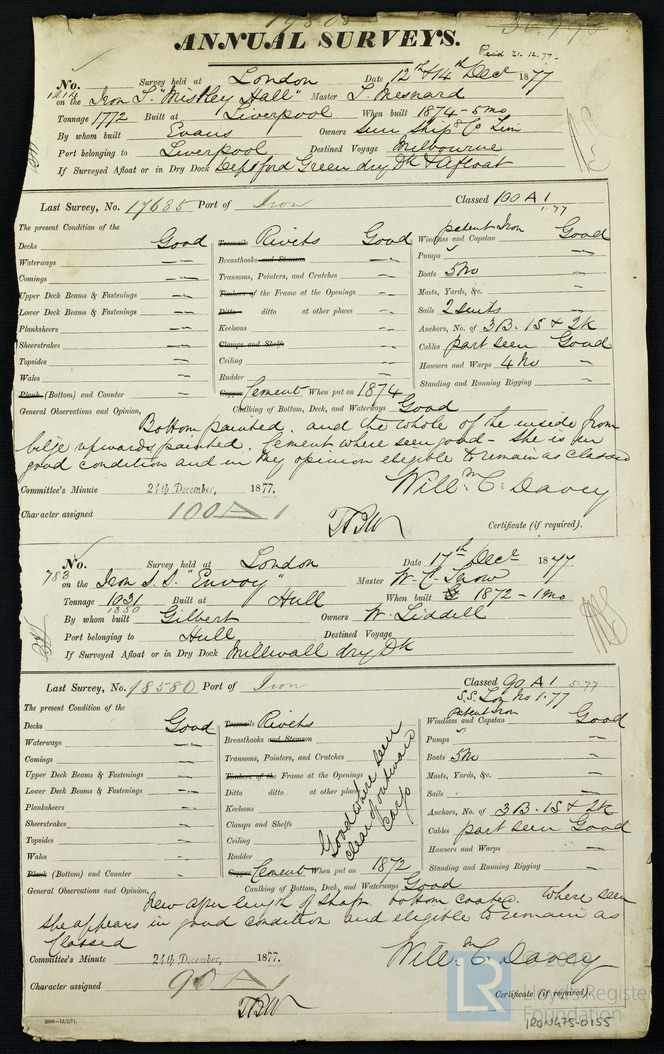 19808
ANNUAL SURVEYS.
No. Survey held at London Date 12th & 14th Decr 1877
on the Iron S. "Mistley Hall" Master T. Mesnard
Tonnage 1772 Built at Liverpool When built 1874 - 5mo
By whom built Evans Owners Sun Ship Co Lim
Port belonging to Liverpool Destined Voyage Melbourne
If Surveyed Afloat or in Dry Dock Deptford Green dry Dk & Afloat
Last Survey, No. 17685 Port of Iron Classed 100 A 1
1.77
The present Condition of the
Decks Good Treenails Rivets Good Windlass and Capstan patent Iron Good
Waterways — Breasthooks and Stemson — Pumps " —
Comings — Transoms, Pointers, and Crutches — Boats 5 No —
Upper Deck Beams & Fastenings — Timbers of the Frame at the Openings — Masts, Yards, &c. —
Lower Deck Beams & Fastenings — Ditto ditto at other places — Sails 2 suits —
Planksheers — Keelsons — Anchors, No. of 3B. 1S & 2K
Sheerstrakes — Clamps and Shelfs Cables part seen Good
Topsides — Ceiling — Hawsers and Warps 4 No —
Wales — Rudder — Standing and Running Rigging —
Plank (Bottom) and Counter — Copper Cement When put on 1874
General Observations and Opinion, Caulking of Bottom, Deck, and Waterways Good
Bottom painted. and the whole of the inside from
bilge upwards painted. Cement where seen good - She is in
good condition and in my opinion eligible to remain as classed
Committee's Minute 21th December, 1877. Willm C. Davey
Character assigned 100 A 1
Certificate (if required).
No. Survey held at London Date 17th Decr 1877
783 on the Iron S.S. "Envoy" Master W. C. Snow
Tonnage 1031 Built at Hull When built 1872 - 1mo
1350
By whom built Gilbert Owners W. Liddell
Port belonging to Hull Destined Voyage
If Surveyed Afloat or in Dry Dock Millwall dry Dk
Last Survey, No. 18580 Port of Iron Classed 90 A 1 5.77
S.S. Lon No 1.77
The present Condition of the
Decks Good Treenails Rivets Windlass and Capstan patent Iron Good
Waterways — Breasthooks and Stemson Pumps " —
Comings — Transoms, Pointers, and Crutches Boats 5 No —
Upper Deck Beams & Fastenings — Timbers of the Frame at the Openings Masts, Yards, &c. —
Lower Deck Beams & Fastenings — Ditto ditto at other places Sails —
Planksheers — Keelsons Anchors, No. of 3B. 1S & 2K
Sheerstrakes — Clamps and Shelfs Cables part seen Good
Topsides — Ceiling Hawsers and Warps —
Wales — Rudder Standing and Running Rigging —
Good where seen
clear of outward
Cargo
Plank (Bottom) and Counter — Copper Cement When put on 1872
General Observations and Opinion, Caulking of Bottom, Deck, and Waterways Good
New after length of Shaft. bottom coated. Where seen
she appears in good condition and eligible to remain as
Classed
Committee's Minute 21th December, 1877. Willm C. Davey
Character assigned 90 A 1
Certificate (if required).
2000—13/2/71.
LR © 2019
Lloyd's Register
Foundation
IRON475-0155